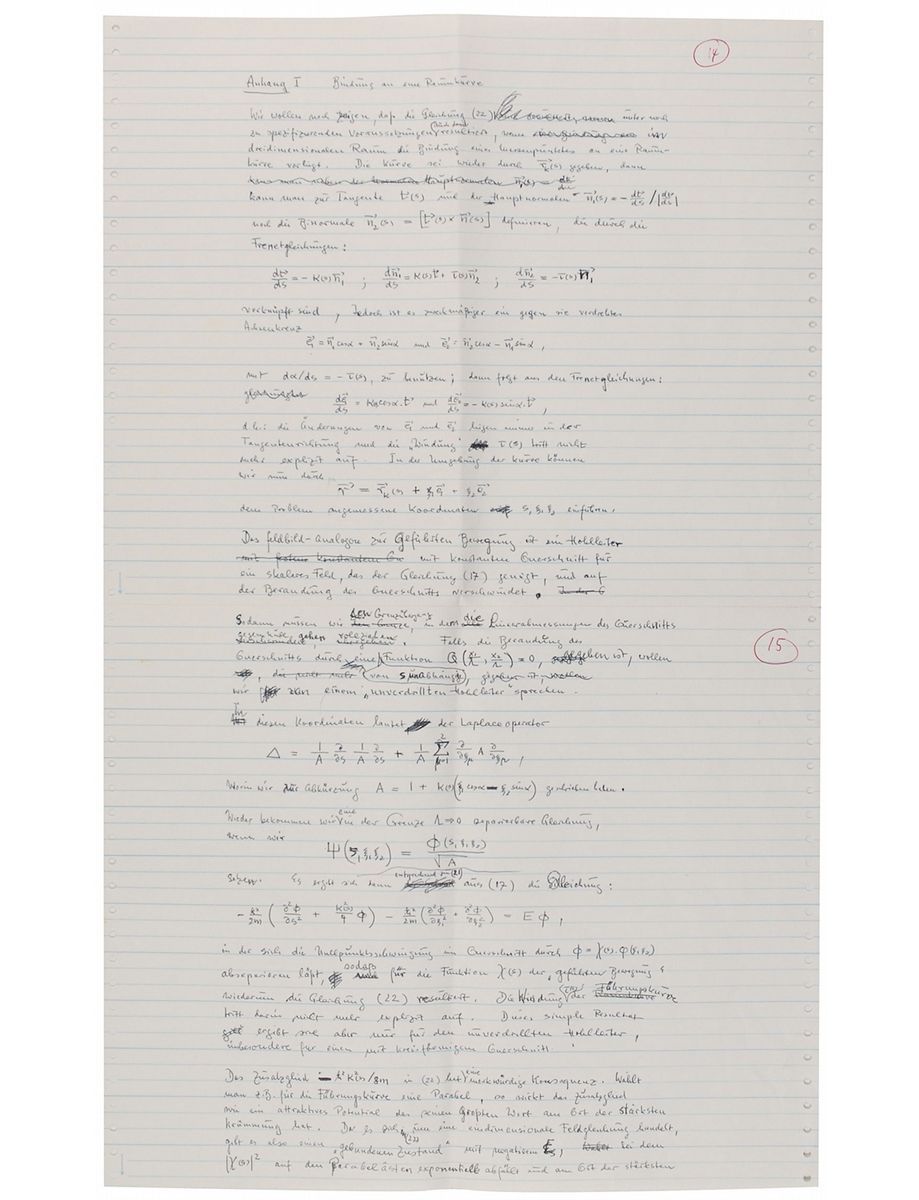 14
Anhang I Bindung an eine Raumkurve
Wir wollen noch zeigen, daß die Gleichung (22) unter noch
zu spezifizierenden Voraussetzungen resultiert, wenn im
dreidimensionalen Raum die Bindung eines Massenpunktes an eine Raum-
kurve vorliegt. Die Kurve sei wieder durch gegeben, dann
kann man zur Tangente t⃗(s) und der Hauptnormalen n⃗₁(s) = - dt⃗/ds / |dt⃗/ds|
noch die Binormale n⃗₂(s) = [t⃗(s) × n⃗(s)] definieren, die durch die
Frenetgleichungen:
dt⃗/ds = - K(s) n⃗₁ ; dn⃗₁/ds = K(s) t⃗ + τ(s) n⃗₂ ; dn⃗₂/ds = - τ(s) n⃗₁
verknüpft sind, Jedoch ist es zweckmäßiger ein gegen sie verdrehtes
Achsenkreuz
e⃗₁ = n⃗₁ cos α + n⃗₂ sin α und e⃗₂ = n⃗₂ cos α - n⃗₁ sin α ,
mit dα/ds = - τ(s), zu benützen; dann folgt aus den Frenetgleichungen:
de⃗₁/ds = K(s) cos α · t⃗ und de⃗₂/ds = - K(s) sin α · t⃗ ,
d.h.: die Änderungen von e⃗₁ und e⃗₂ liegen immer in der
Tangentenrichtung und die „Windung" τ(s) tritt nicht
mehr explizit auf. In der Umgebung der Kurve können
wir nun durch
r⃗ = r⃗ₖ(s) + ξ₁ e⃗₁ + ξ₂ e⃗₂
dem Problem angemessene Koordinaten s, ξ₁ ξ₂ einführen.
Das Feldbild-Analogon zur Geführten Bewegung ist ein Hohlleiter
mit konstantem Querschnitt für
ein skalares Feld, das der Gleichung (17) genügt, und auf
der Berandung des Querschnitts verschwindet.
Sodann müssen wir den Grenzübergang, in dem die Linearabmessungen des Querschnitts
gegen Null gehen vollziehen. Falls die Berandung des
15
Querschnitts durch eine Funktion Q(x₁/Λ, x₂/Λ) = 0, gegeben ist, wollen
von s unabhängige,
wir von einem „unverdrillten Hohlleiter" sprechen.
In diesen Koordinaten lautet der Laplaceoperator
Δ = 1/A ∂/∂s 1/A ∂/∂s + 1/A Σ ∂/∂ξμ A ∂/∂ξμ ,
Worin wir zur Abkürzung A = 1 + K(s)(ξ₁ cos α - ξ₂ sin α) geschrieben haben.
Wieder bekommen wir eine in der Grenze Λ→0 separierbare Gleichung,
wenn wir
Ψ(s, ξ₁ ξ₂) = Φ(s, ξ₁ ξ₂)/√A
setzen. Es ergibt sich dann entsprechend zu (21) aus (17) die Gleichung:
- ħ²/2m ( ∂²Φ/∂s² + K²(s)/4 Φ ) - ħ²/2m ( ∂²Φ/∂ξ₁² + ∂²Φ/∂ξ₂² ) = E Φ ,
in der sich die Nullpunktsschwingung im Querschnitt durch Φ = χ(s) · φ(ξ₁ξ₂)
abseparieren läßt, sodass für die Funktion χ(s) der „geführten Bewegung"
wiederum die Gleichung (22) resultiert. Die Windung τ(s) der Führungskurve
tritt darin nicht mehr explizit auf. Dieses simple Resultat
ergibt sich aber nur für den unverdrillten Hohlleiter,
insbesondere für einen mit kreisförmigem Querschnitt.
Das Zusatzglied - ħ²K²(s)/8m in (22) hat eine merkwürdige Konsequenz. Wählt
man z.B. für die Führungskurve eine Parabel, so wirkt das Zusatzglied
wie ein attraktives Potential das seinen Größten Wert am Ort der stärksten
Krümmung hat. Da es sich um eine eindimensionale Feldgleichung handelt,
gibt es also einen „gebundenen Zustand" mit negativem E, bei dem
|χ(s)|² auf den Parabelästen exponentiell abfällt und am Ort der stärksten